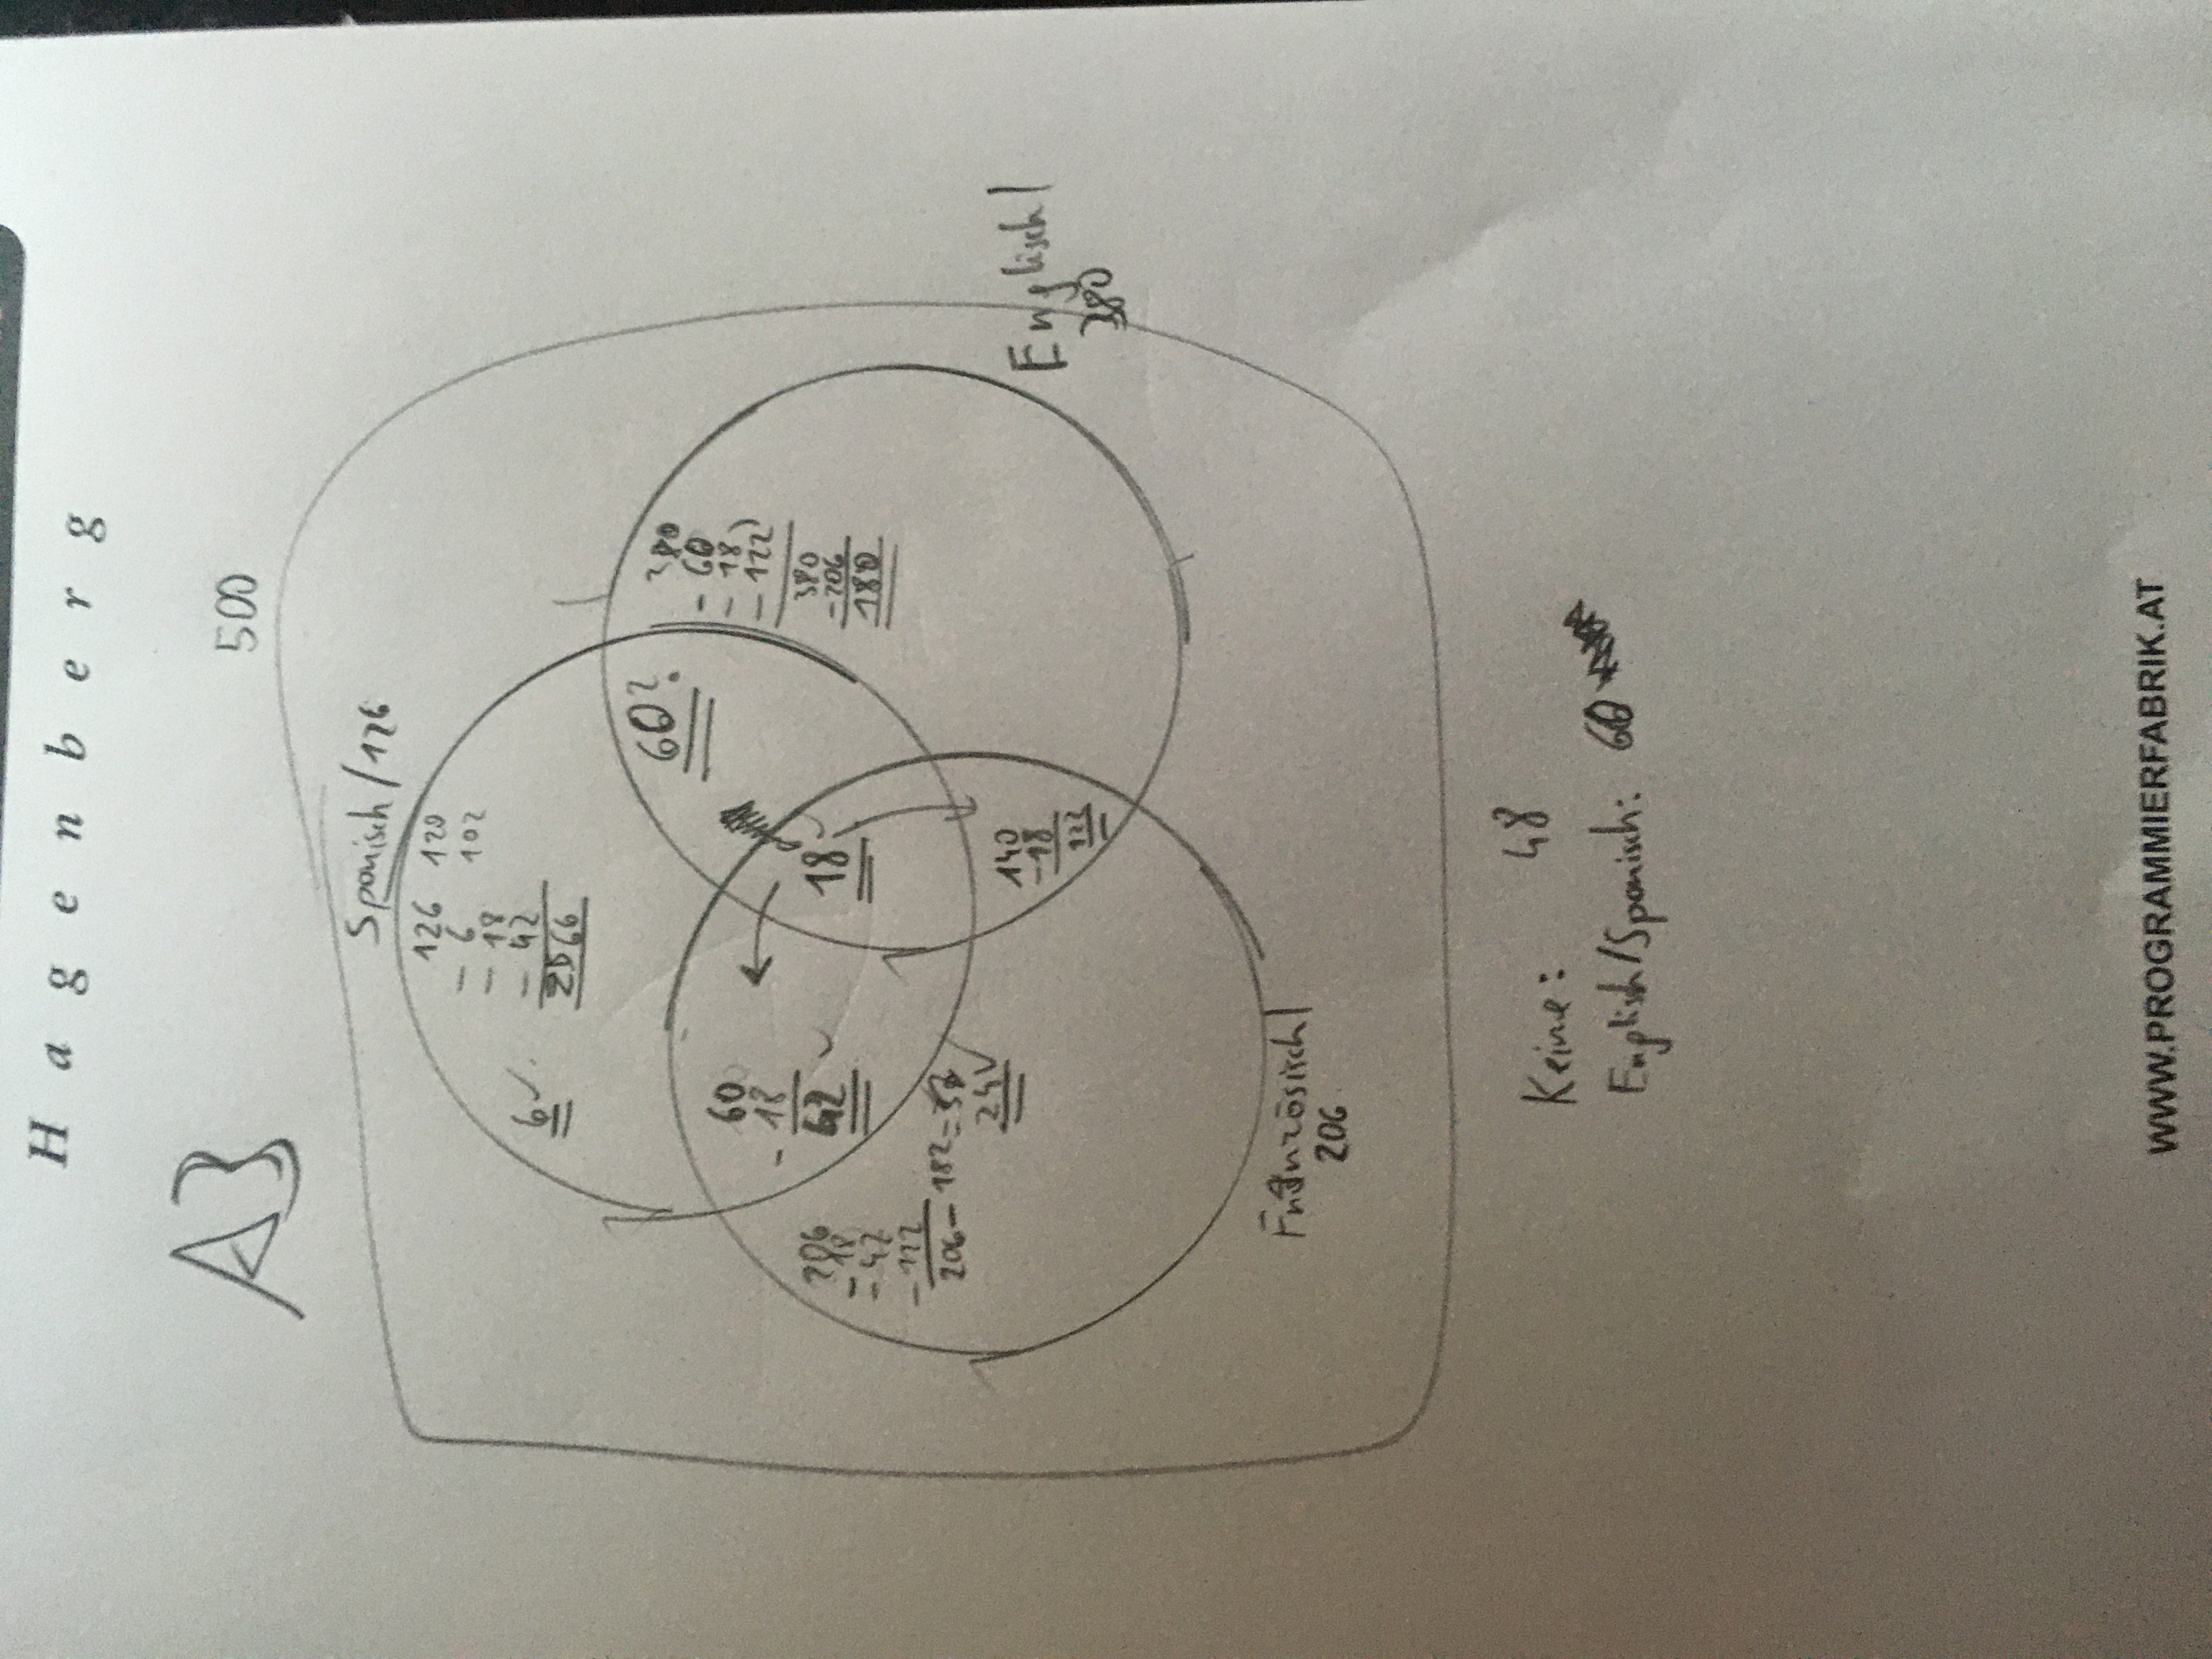 Hagenberg
A3
500
Spanisch/126
126 120
- 6 102
- 18
- 42
66
6 ✓
60?
380
- 60
- 18
- 122)
380
-206
180
60
- 18
42 ✓
18 ✓
206
- 18
- 42
- 122
206 - 182 =
24 ✓
140
-18
122
Englisch|
380
Französisch|
206
Keine: 48
English/Spanisch: 60
WWW.PROGRAMMIERFABRIK.AT